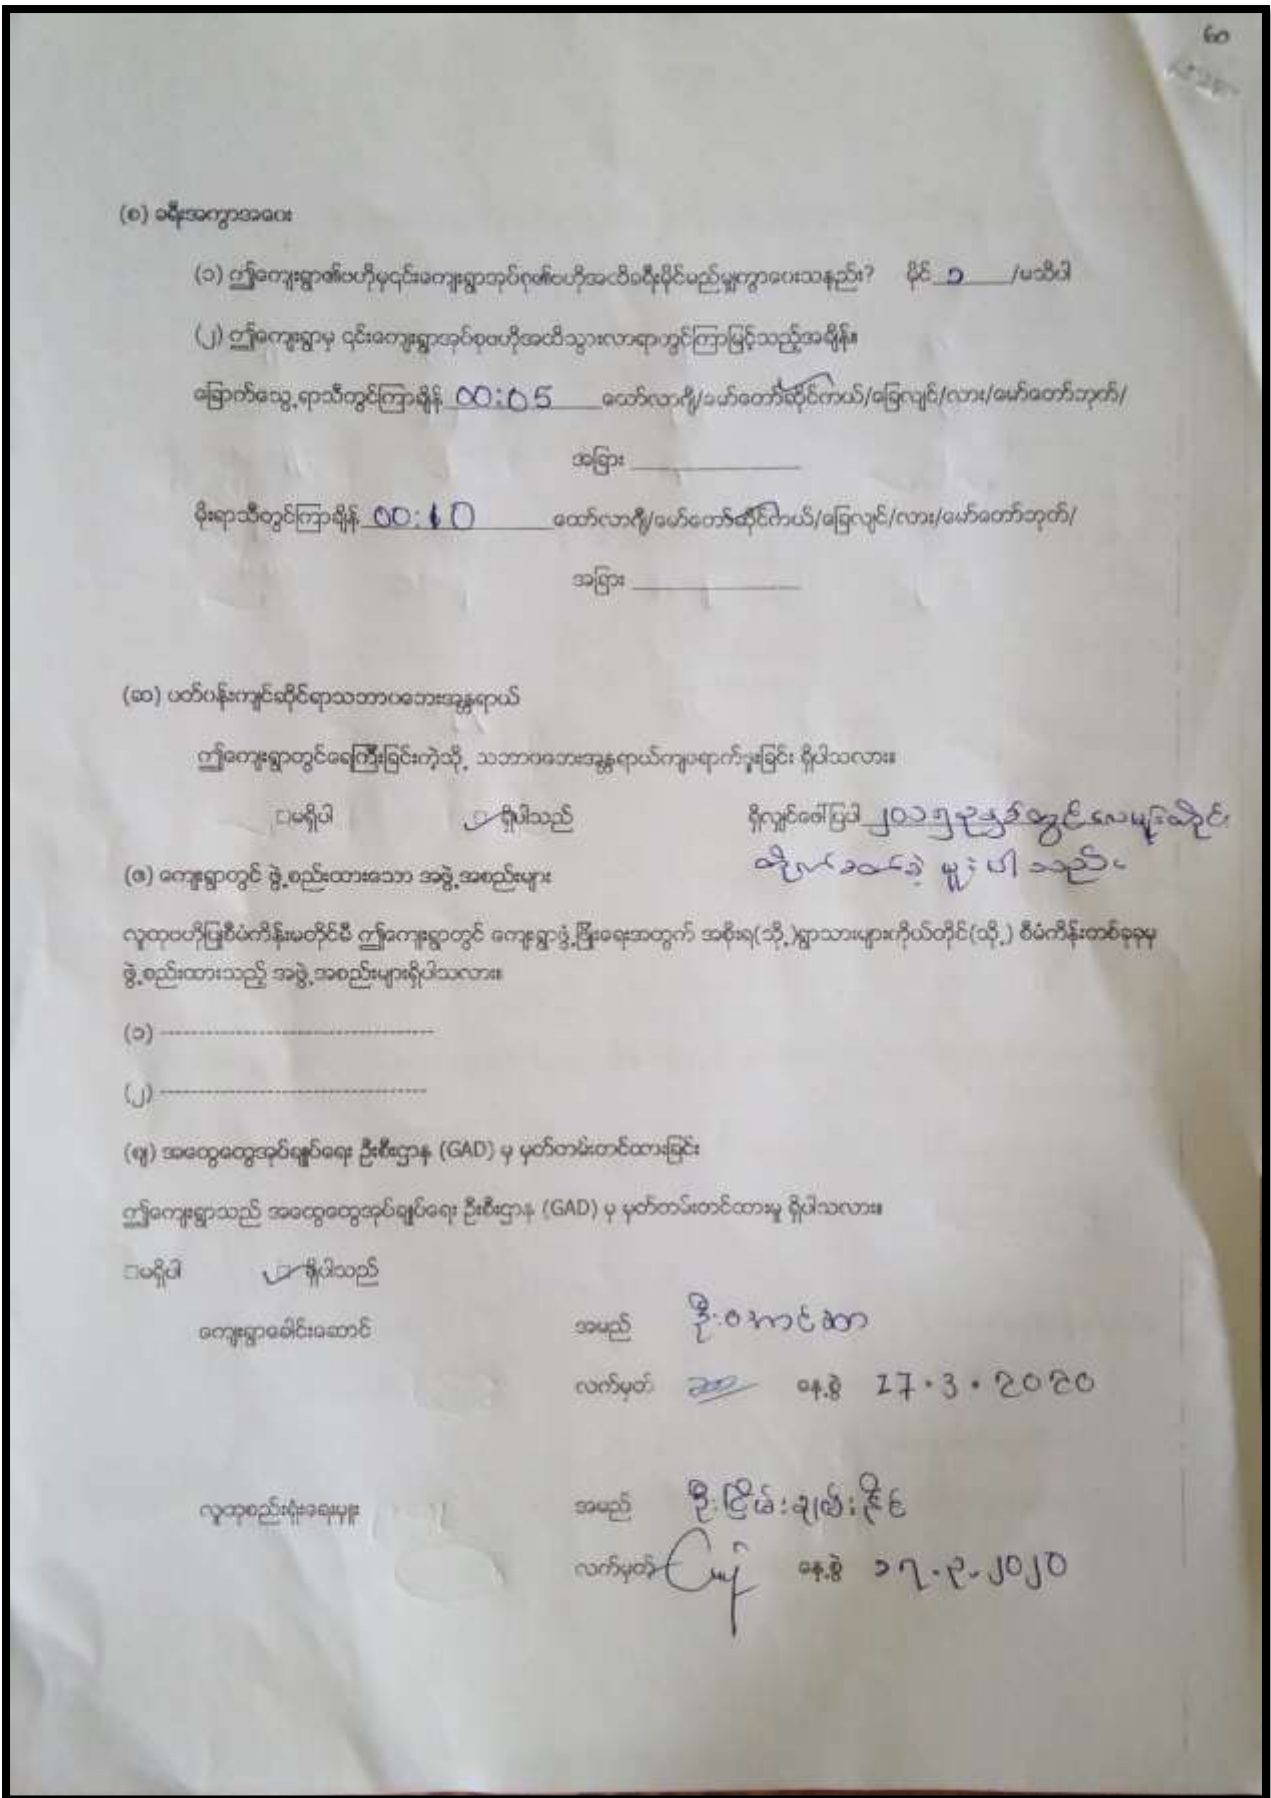 ၆၀
(စ) ခရီးအကွာအဝေး
(၁) ဤကျေးရွာ၏ဗဟိုမှ၎င်းကျေးရွာအုပ်စု၏ဗဟိုအထိခရီးမိုင်မည်မျှကွာဝေးသနည်း? မိုင် ၁ /မသိပါ
(၂) ဤကျေးရွာမှ ၎င်းကျေးရွာအုပ်စုဗဟိုအထိသွားလာရာတွင်ကြာမြင့်သည့်အချိန်။
ခြောက်သွေ့ရာသီတွင်ကြာချိန် 00:05 ထော်လာဂျီ/မော်တော်ဆိုင်ကယ်/ခြေလျင်/လား/မော်တော်ဘုတ်/
အခြား
မိုးရာသီတွင်ကြာချိန် 00:10 ထော်လာဂျီ/မော်တော်ဆိုင်ကယ်/ခြေလျင်/လား/မော်တော်ဘုတ်/
အခြား
(ဆ) ပတ်ဝန်းကျင်ဆိုင်ရာသဘာဝဘေးအန္တရာယ်
ဤကျေးရွာတွင်ရေကြီးခြင်းကဲ့သို့ သဘာဝဘေးအန္တရာယ်ကျရောက်ဖူးခြင်း ရှိပါသလား။
□မရှိပါ □ ရှိပါသည် ရှိလျှင်ဖော်ပြပါ ၂၀၁၅ ခုနှစ်တွင် လေမုန်တိုင်း
တိုက်ခတ်ခဲ့မှုးပါသည်။
(ဇ) ကျေးရွာတွင် ဖွဲ့စည်းထားသော အဖွဲ့အစည်းများ
လူထုဗဟိုပြုစီမံကိန်းမတိုင်မီ ဤကျေးရွာတွင် ကျေးရွာဖွံ့ဖြိုးရေးအတွက် အစိုးရ(သို့)ရွာသားများကိုယ်တိုင်(သို့) စီမံကိန်းတစ်ခုခုမှ
ဖွဲ့စည်းထားသည့် အဖွဲ့အစည်းများရှိပါသလား။
(၁) -----------------------------------
(၂) ----------------------------------
(ဈ) အထွေထွေအုပ်ချုပ်ရေး ဦးစီးဌာန (GAD) မှ မှတ်တမ်းတင်ထားခြင်း
ဤကျေးရွာသည် အထွေထွေအုပ်ချုပ်ရေး ဦးစီးဌာန (GAD) မှ မှတ်တမ်းတင်ထားမှု ရှိပါသလား။
□မရှိပါ □ ရှိပါသည်
ကျေးရွာခေါင်းဆောင် အမည် ဦးအောင်ဆာ
လက်မှတ် နေ့စွဲ 17.3.2020
လူထုစည်းရုံးရေးမှူး အမည် ဦးငြိမ်းချမ်းနိုင်
လက်မှတ် နေ့စွဲ ၁၇.၃.၂၀၂၀